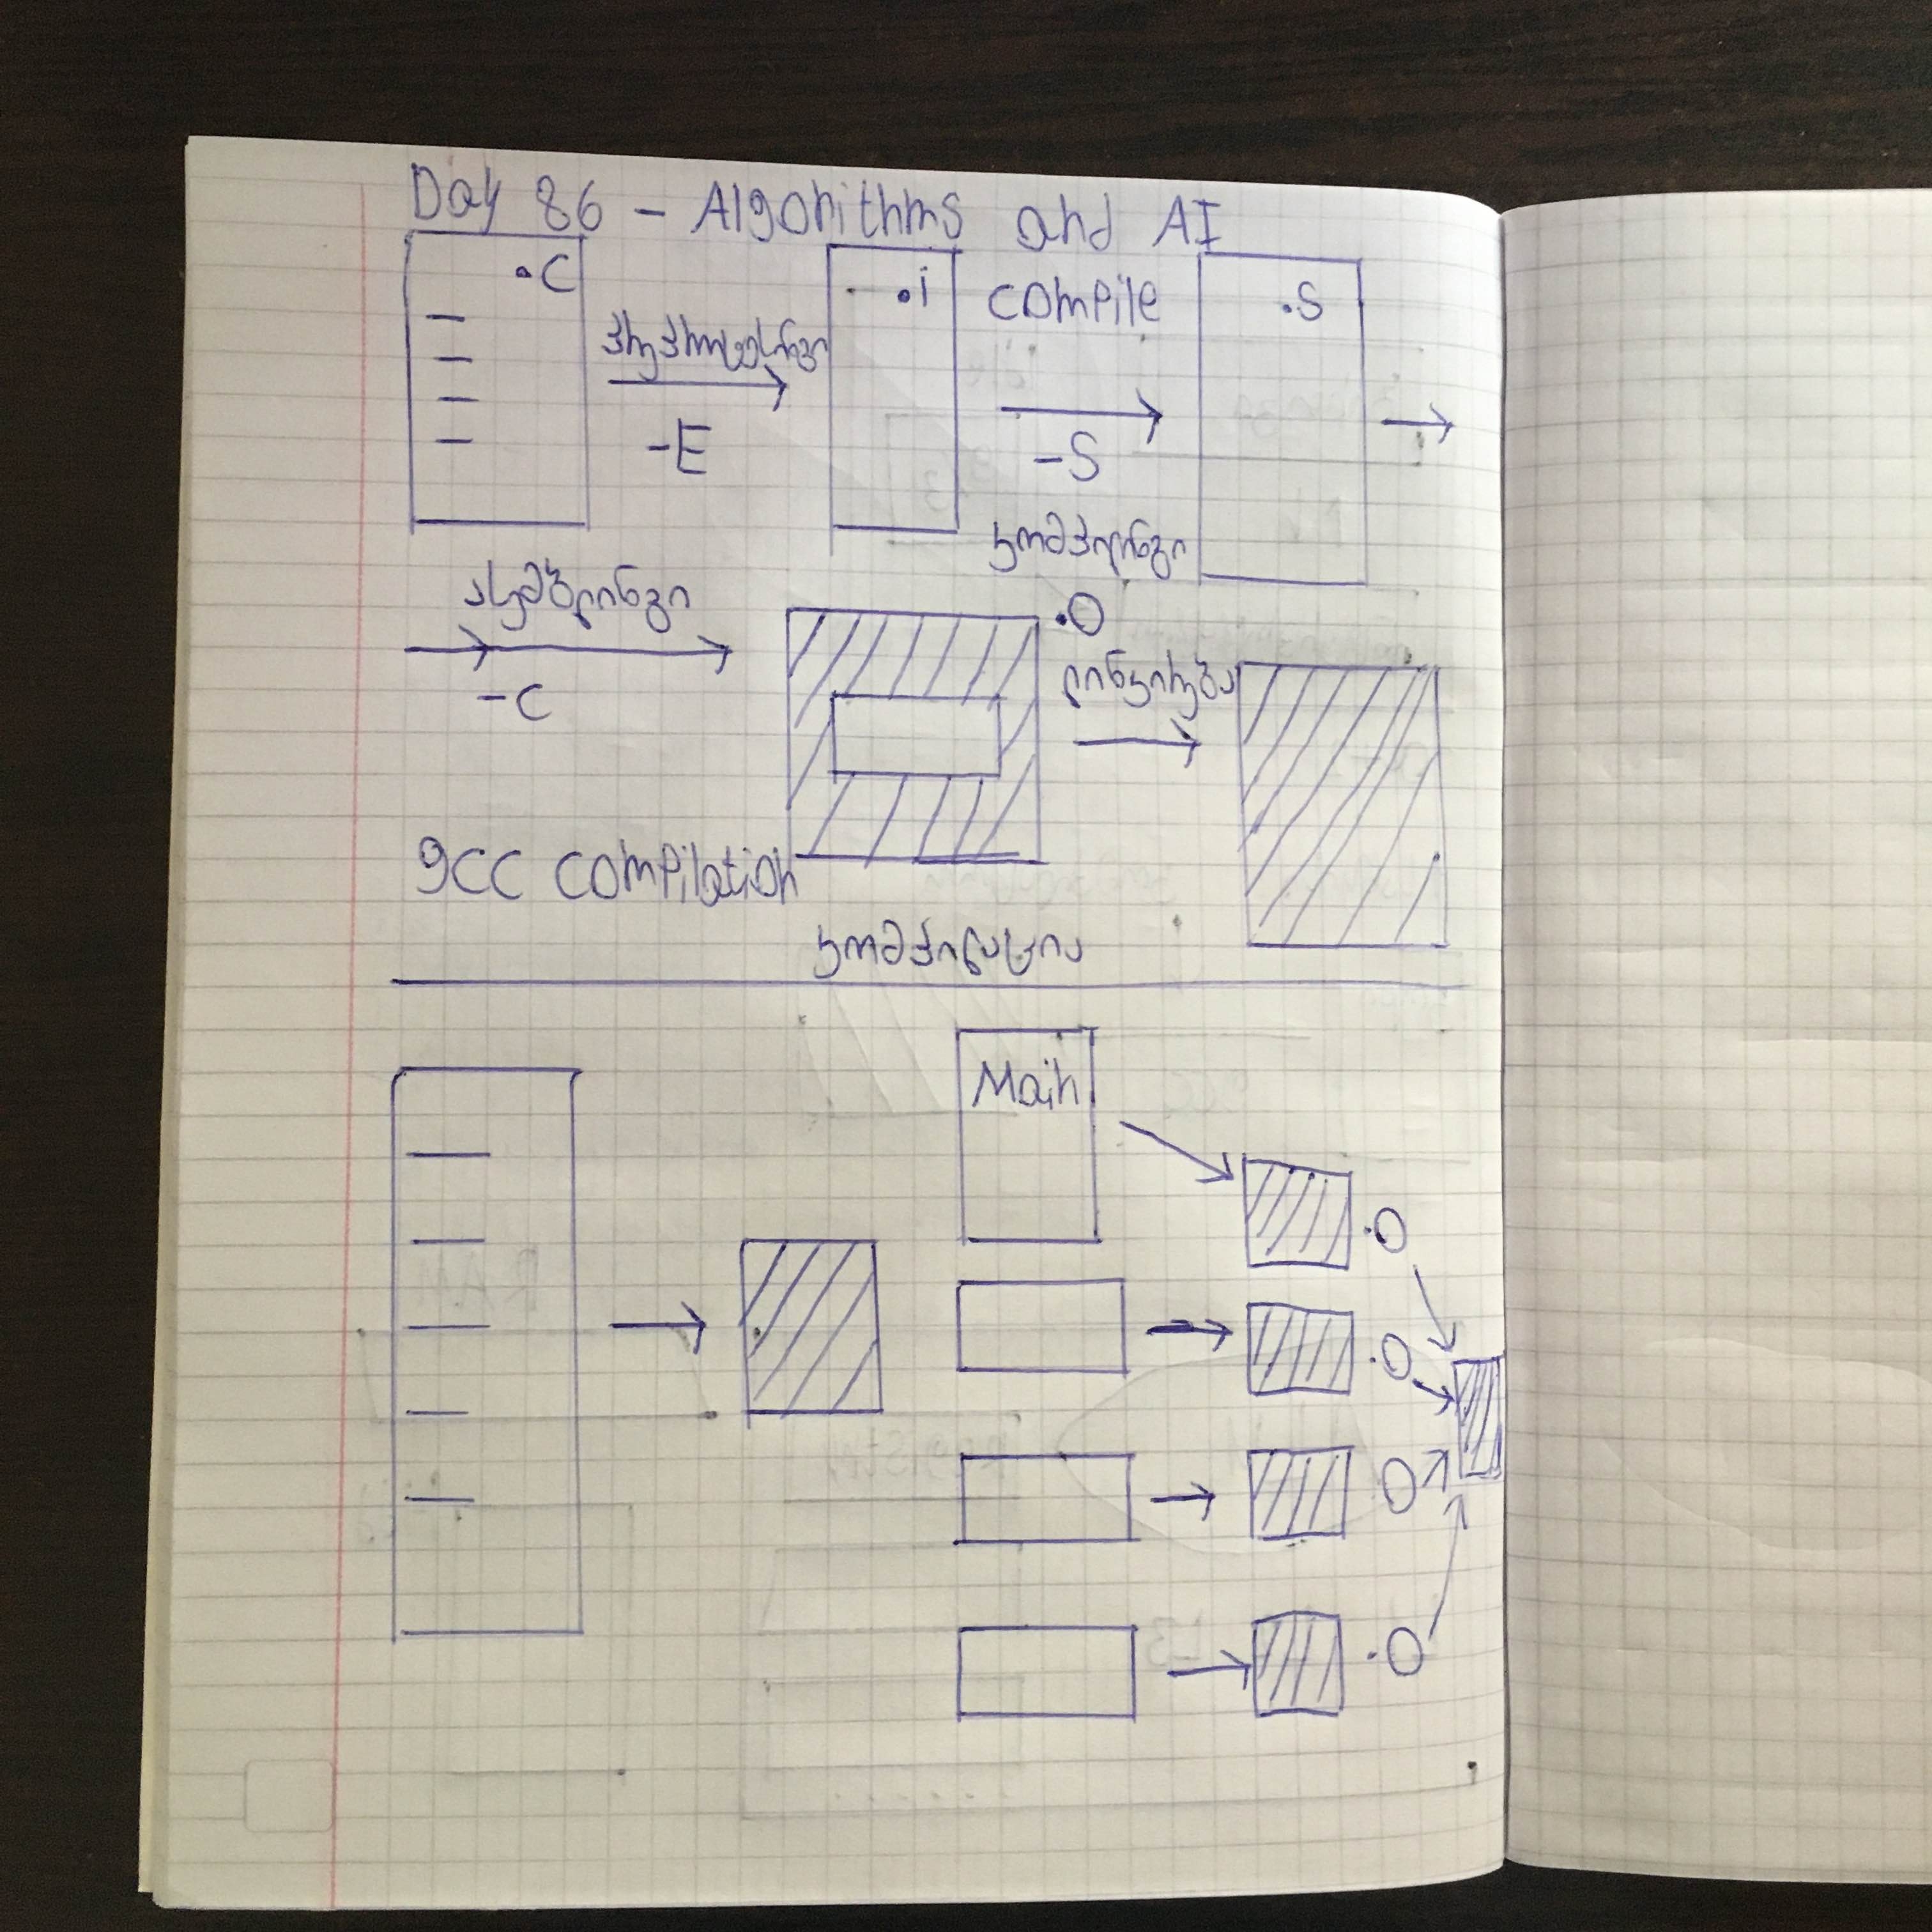 Day 86 - Algorithms and AI
.C
პრეპროცესინგი
-E
.i
compile
-S
კომპილინგი
.S
ასემბლინგი
-C
.O
ლინკირება
gcc compilation
კომპილაცია
Main
.O
.O
O
.O